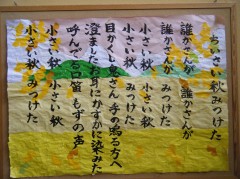 ちいさい秋みつけた
誰かさんが 誰かさんが
誰かさんが みつけた
小さい秋 小さい秋
小さい秋 みつけた
目かくし鬼さん 手の鳴る方へ
澄ましたお耳に かすかに染みた
呼んでる口笛 もずの声
小さい秋 小さい秋
小さい秋 みつけた